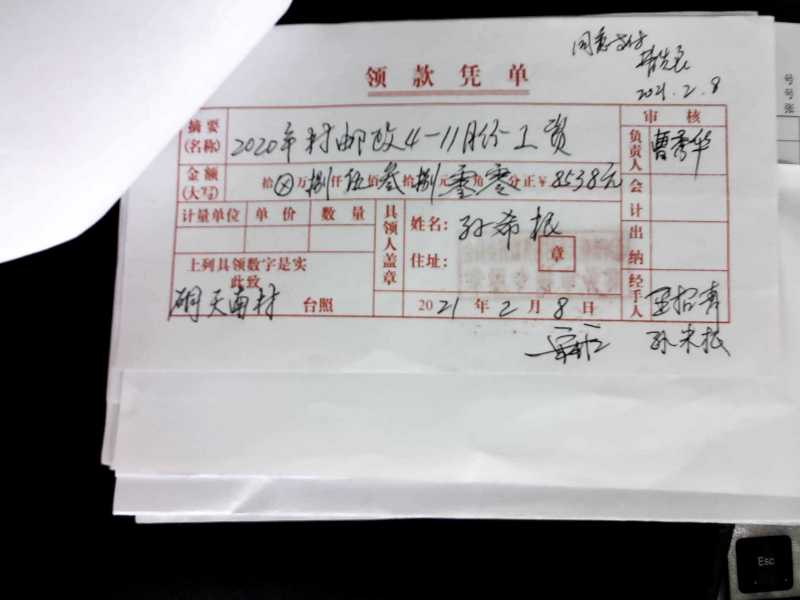 同意支付
2021.2.8
领款凭单
摘要(名称) 2020年村邮政4-11月份工资
审核
负责人 曹秀华
金额(大写) 拾⊗万捌仟伍佰叁拾捌元零角零分正¥8538元
会计
计量单位 单价 数量
具领人盖章
姓名: 孙希根
住址:
章
出纳
上列具领数字是实
此致
台照
2021年2月8日
经手人
孙米根
号
号
张
Esc